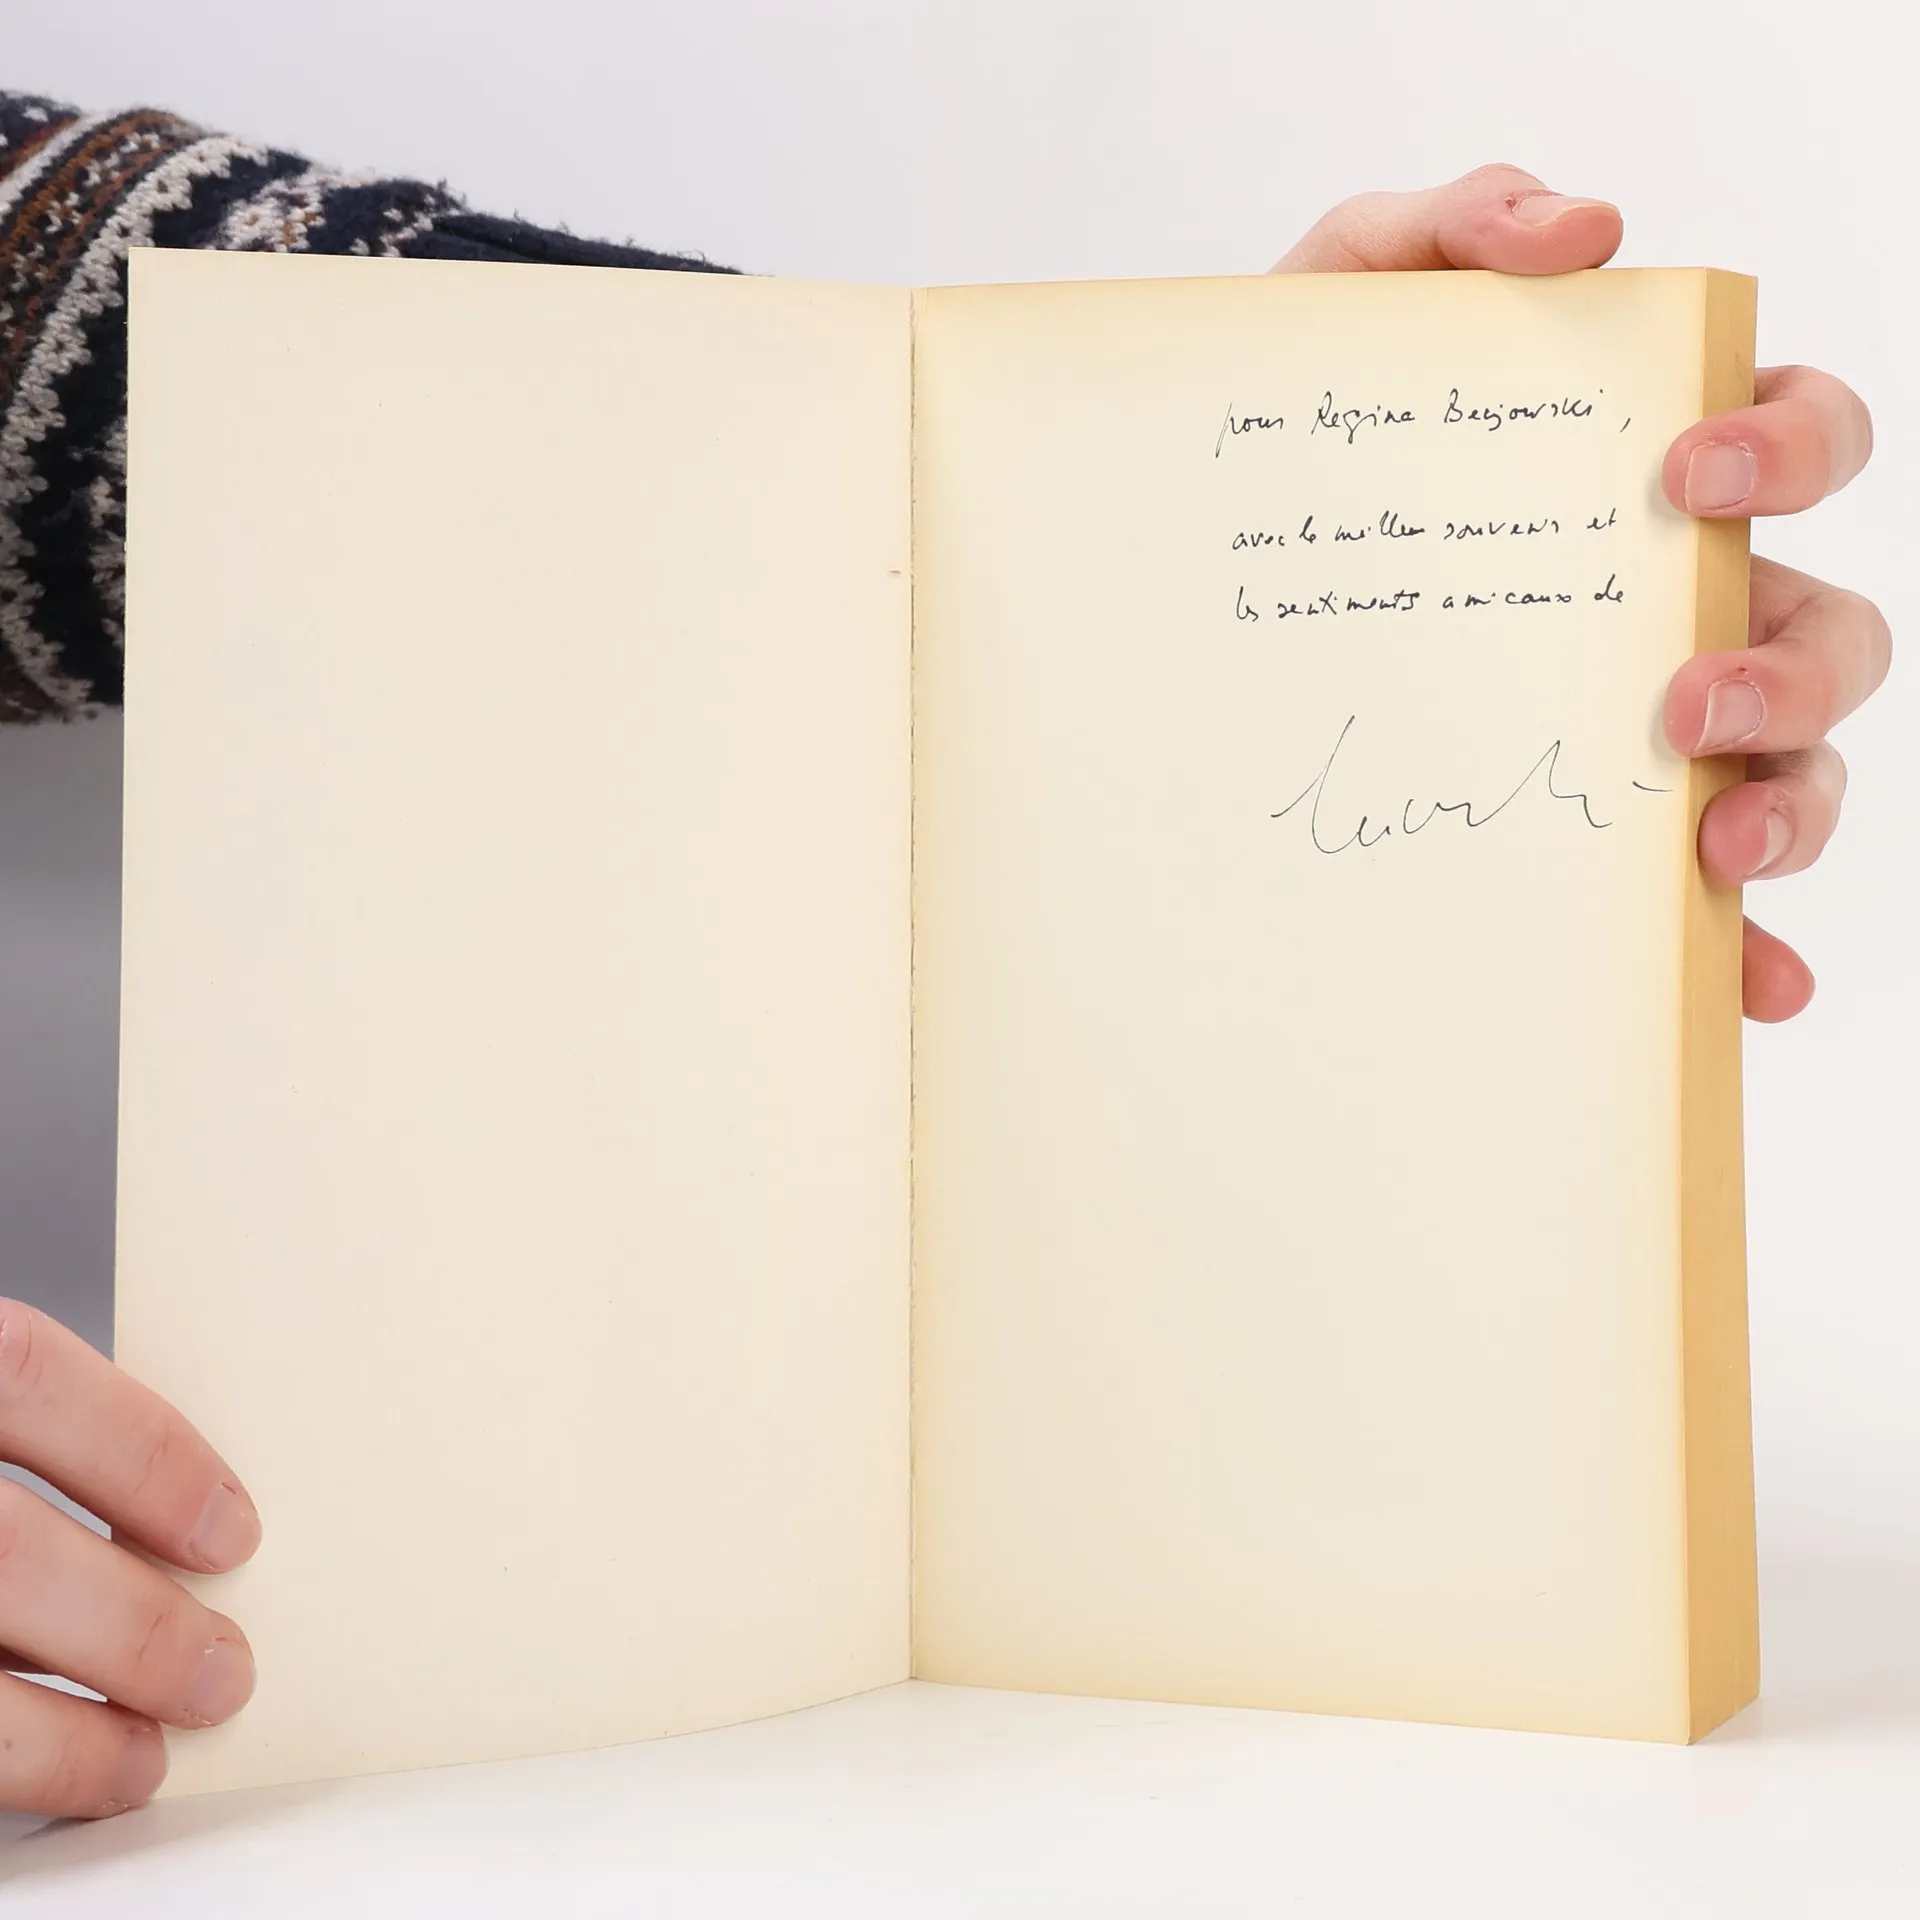 pour Regina Becjowski,
avec le meilleur souvenir et
les sentiments amicaux de